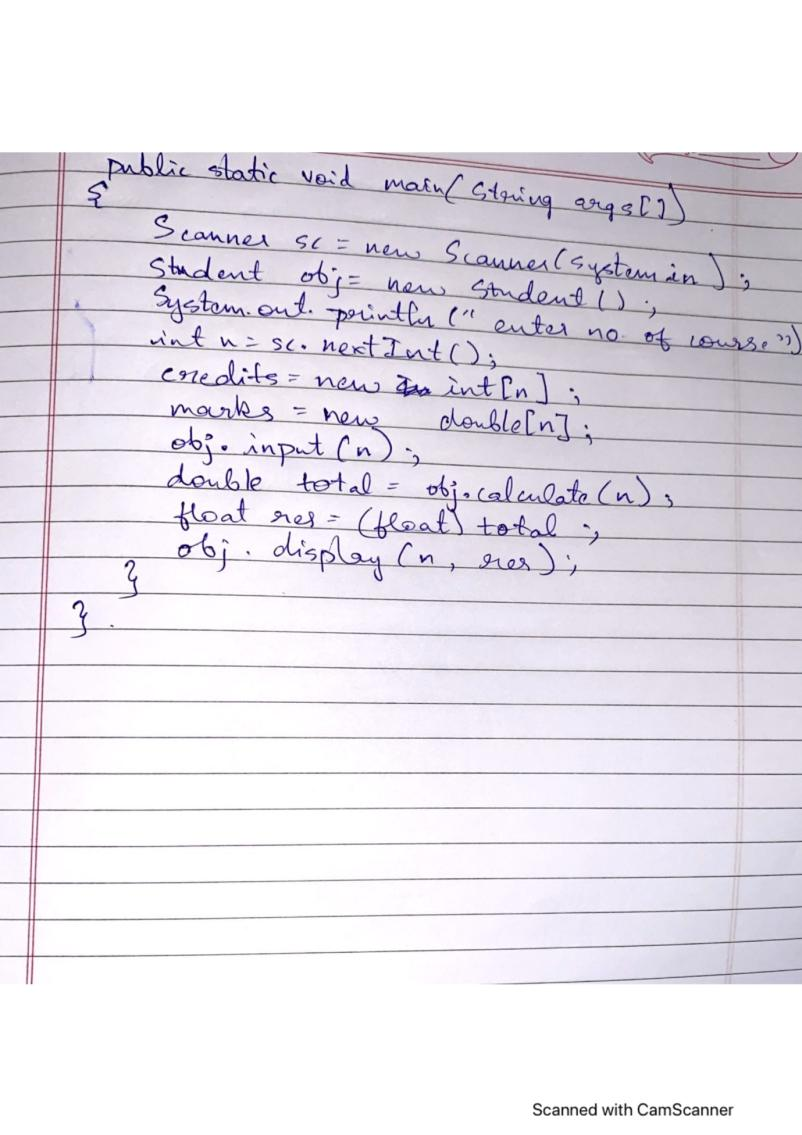 public static void main(String args[])
{
Scanner sc = new Scanner(System.in);
Student obj = new Student();
System.out.println("enter no. of course")
int n = sc.nextInt();
credits = new int[n];
marks = new double[n];
obj.input(n);
double total = obj.calculate(n);
float res = (float) total;
obj.display(n, res);
}
}
Scanned with CamScanner